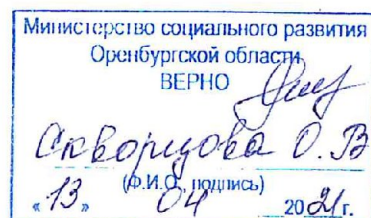 Министерство социального развития
Оренбургской области
ВЕРНО
Скворцова О. В
(Ф.И.О., подпись)
« 13 » 04 2021 г.